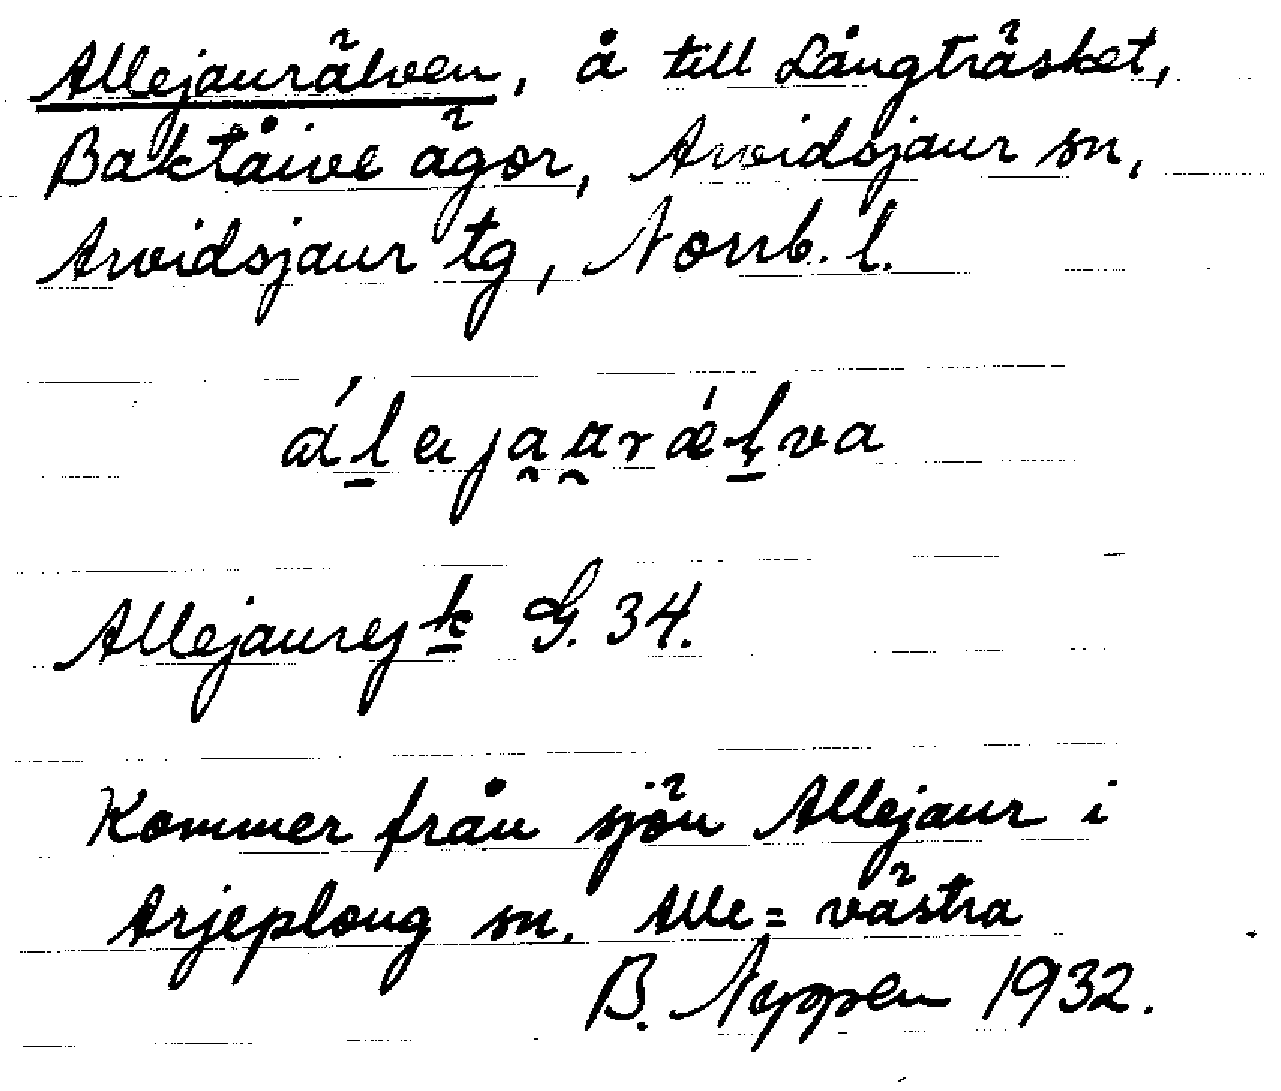 Allejaurälven, å till Långträsket,
Baktåive ägor, Arvidsjaur sn,
Arvidsjaur tg, Norrb. l.
Allejaurejk G. 34.
Kommer från sjön Allejaur i
Arjeploug sn. Alle = västra
B. Nyppen 1932.